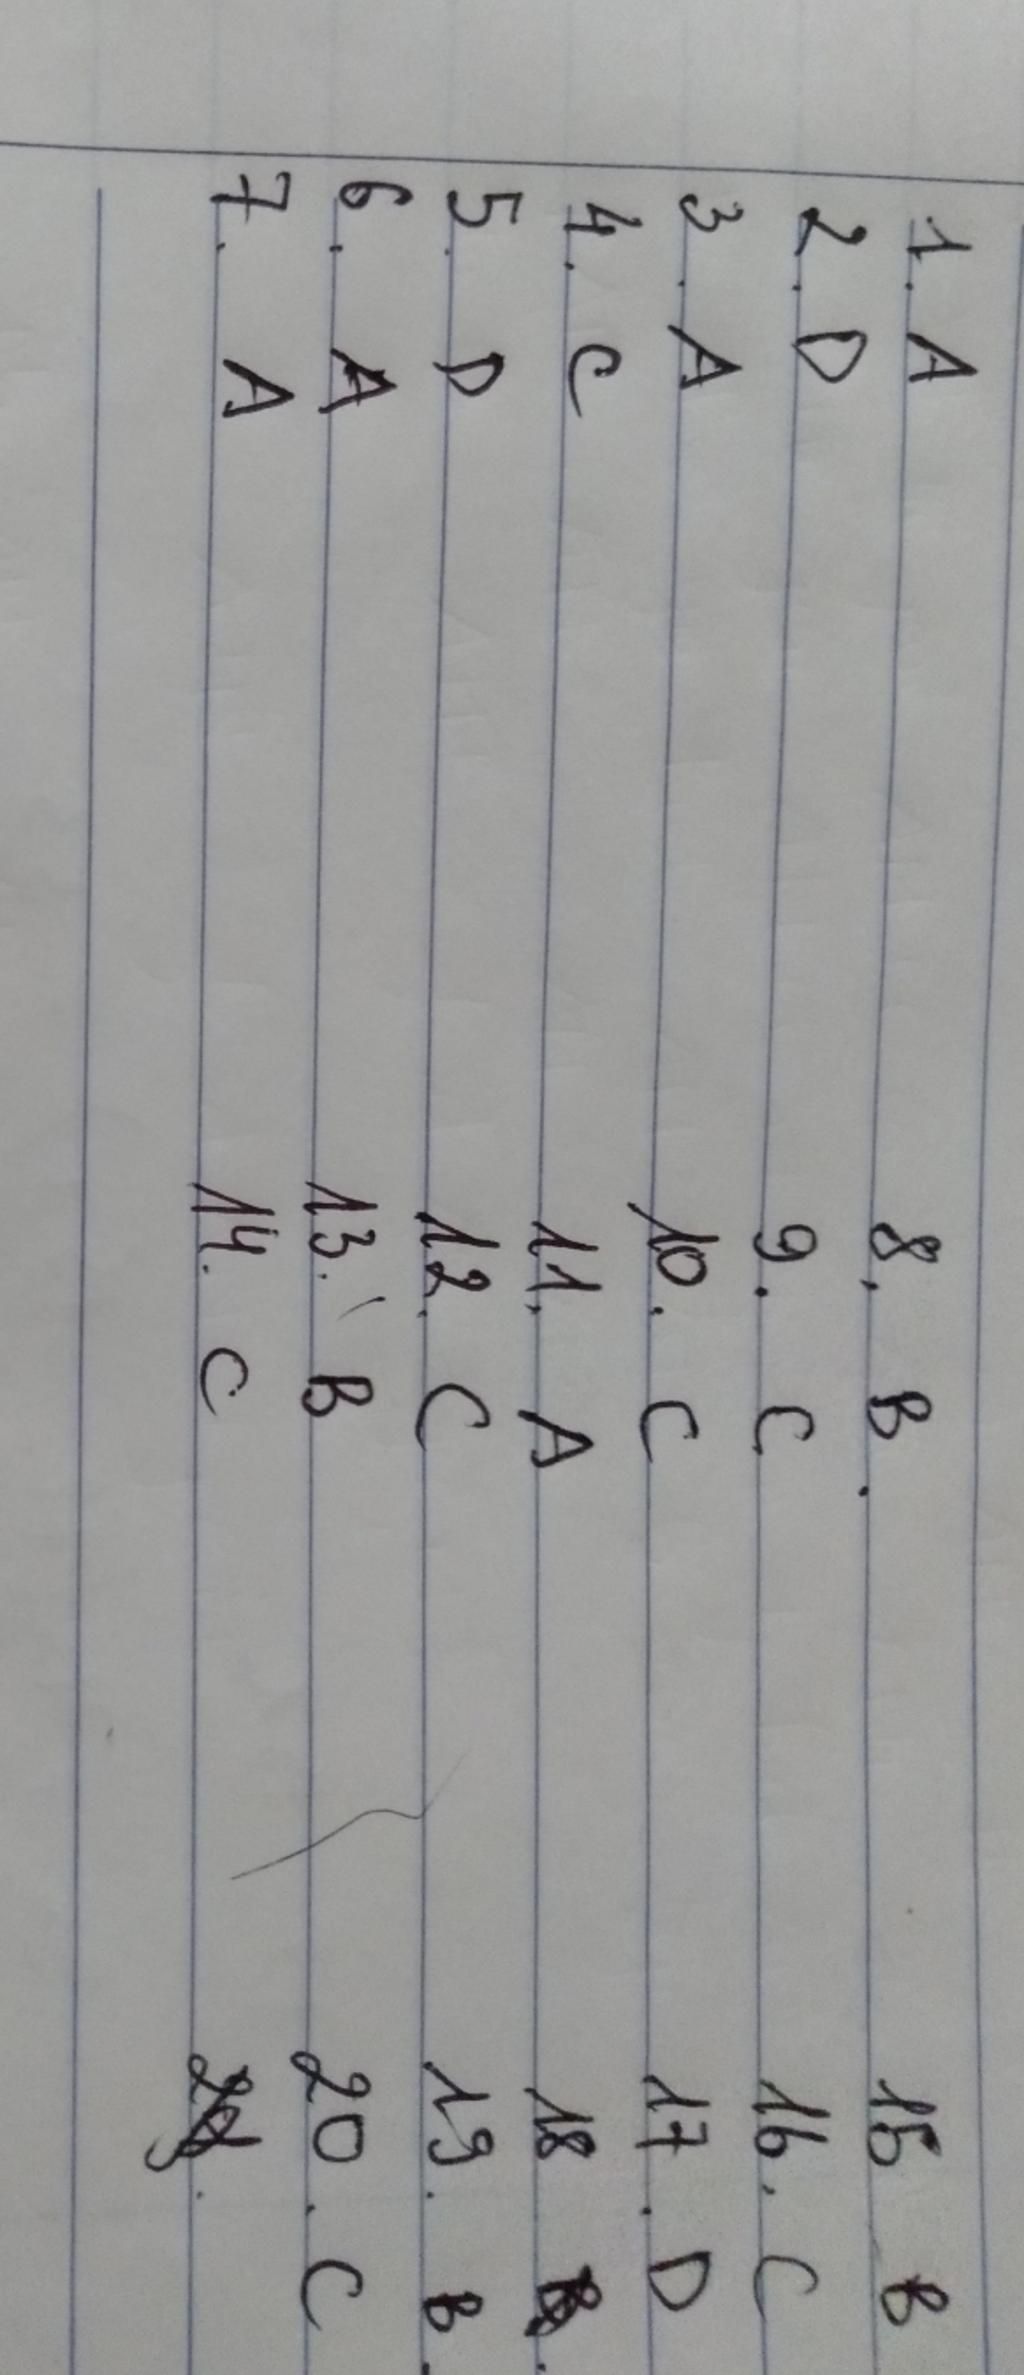 1. A
2. D
3. A
4. C
5. D
6. A
7. A
8. B.
9. C
10. C
11. A
12. C
13. B
14. C
15 B
16. C
17. D
18
19. B.
20. C